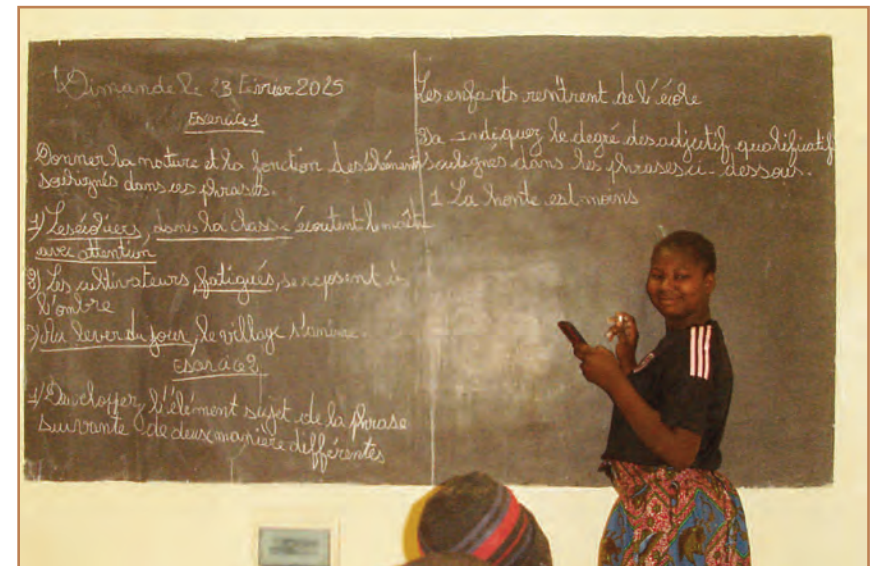 Dimande le 23 Février 2025
Exercice1
Donner la nature et la fonction des éléments
soulignés dans ces phrases.
1) Les écoliers, dans la classe écoutent le maître
avec attention
2) Les cultivateurs, fatigués, se reposent à
l'ombre
3) Au lever du jour, le village s'anime.
Exercice2
1) Developper l'élément sujet de la phrase
suivante de deux manière différentes
Les enfants rentrent de l'école
2a - Indiquez le degré des adjectif qualificatif
soulignés dans les phrases ci-dessous.
1 La honte est moins